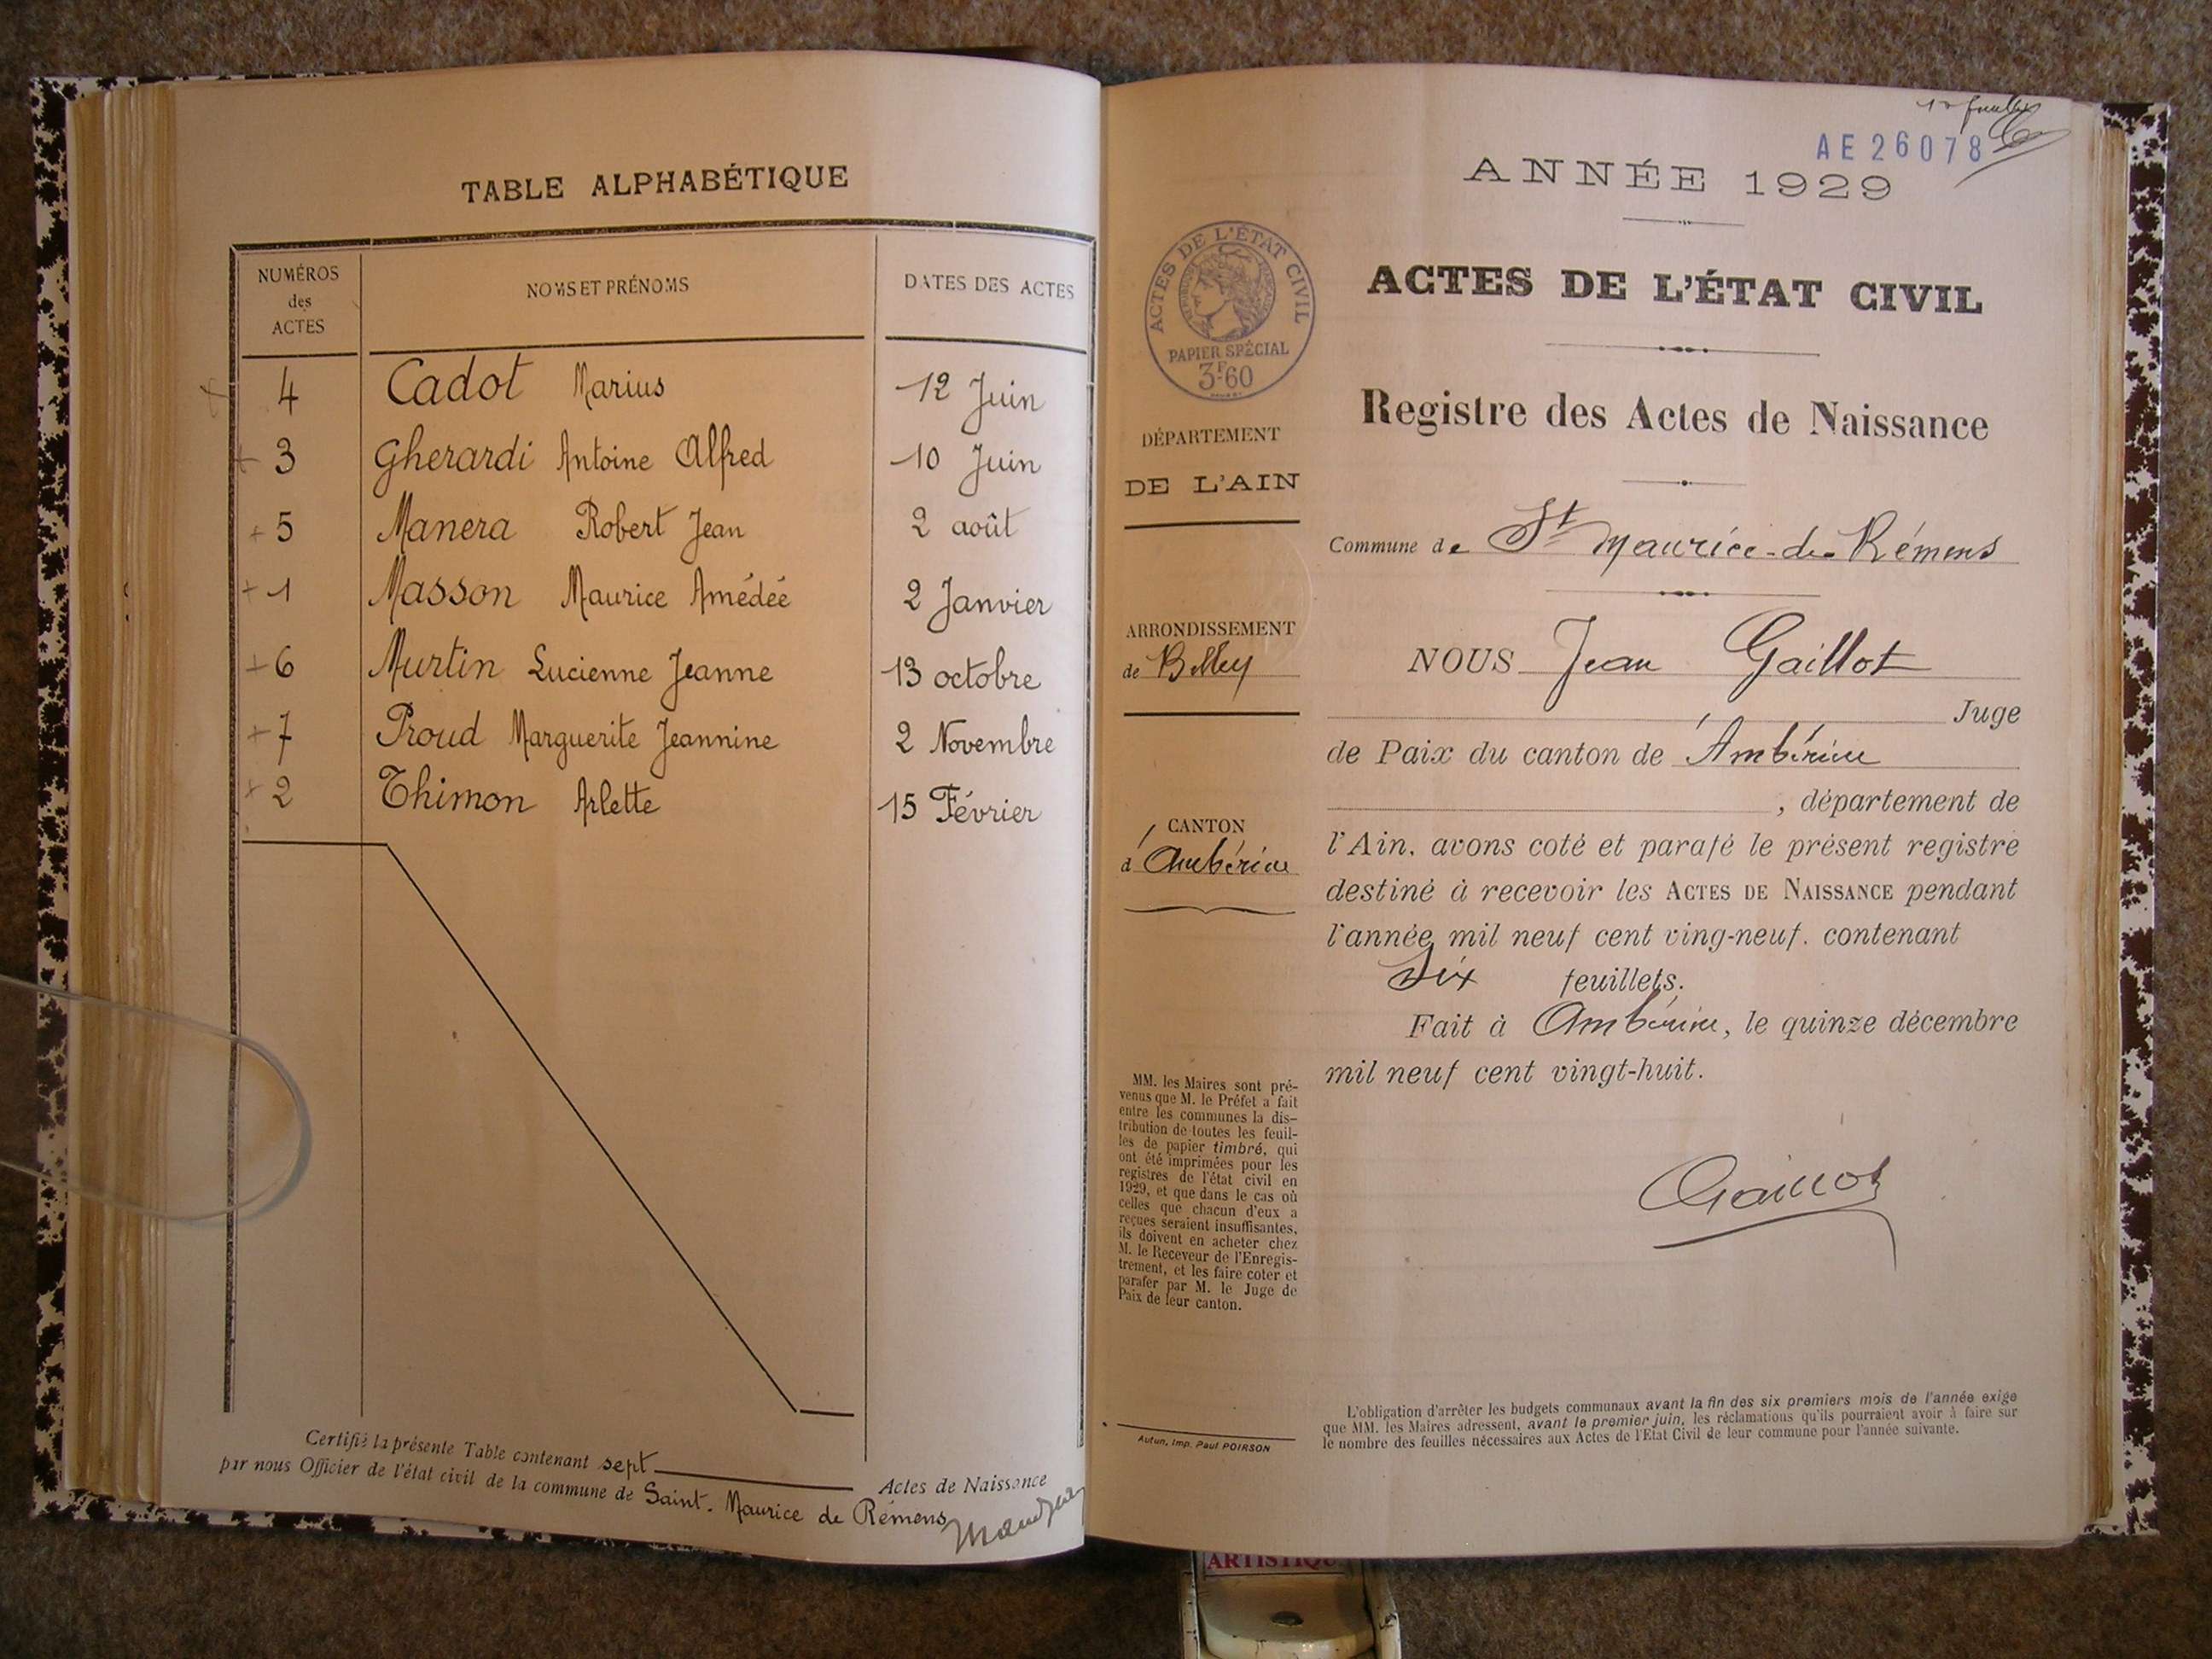 TABLE ALPHABÉTIQUE
NUMÉROS des ACTES
NOMS ET PRÉNOMS
DATES DES ACTES
4 Cadot Marius 12 Juin
3 Gherardi Antoine Alfred 10 Juin
5 Manera Robert Jean 2 août
1 Masson Maurice Amédée 2 Janvier
6 Murtin Lucienne Jeanne 13 octobre
7 Proud Marguerite Jeannine 2 Novembre
2 Thimon Arlette 15 Février
Certifié la présente Table contenant sept Actes de Naissance
par nous Officier de l'état civil de la commune de Saint-Maurice de Rémens
AE 26078
ANNÉE 1929
ACTES DE L'ÉTAT CIVIL
PAPIER SPÉCIAL
3F60
ACTES DE L'ÉTAT CIVIL
Registre des Actes de Naissance
DÉPARTEMENT
DE L'AIN
Commune de St Maurice-de-Rémens
ARRONDISSEMENT
de Belley
CANTON
d'Ambérieu
NOUS Jean Gaillot
Juge
de Paix du canton de Ambérieu
, département de
l'Ain, avons coté et parafé le présent registre
destiné à recevoir les ACTES DE NAISSANCE pendant
l'année mil neuf cent ving-neuf, contenant
six feuillets.
Fait à Ambérieu, le quinze décembre
mil neuf cent vingt-huit.
Gaillot
MM. les Maires sont pré-
venus que M. le Préfet a fait
entre les communes la dis-
tribution de toutes les feuil-
les de papier timbré, qui
ont été imprimées pour les
registres de l'état civil en
1929, et que dans le cas où
celles que chacun d'eux a
reçues seraient insuffisantes,
ils doivent en acheter chez
M. le Receveur de l'Enregis-
trement, et les faire coter et
parafer par M. le Juge de
Paix de leur canton.
Autun, Imp. Paul POIRSON
L'obligation d'arrêter les budgets communaux avant la fin des six premiers mois de l'année exige
que MM. les Maires adressent, avant le premier juin, les réclamations qu'ils pourraient avoir à faire sur
le nombre des feuilles nécessaires aux Actes de l'Etat Civil de leur commune pour l'année suivante.